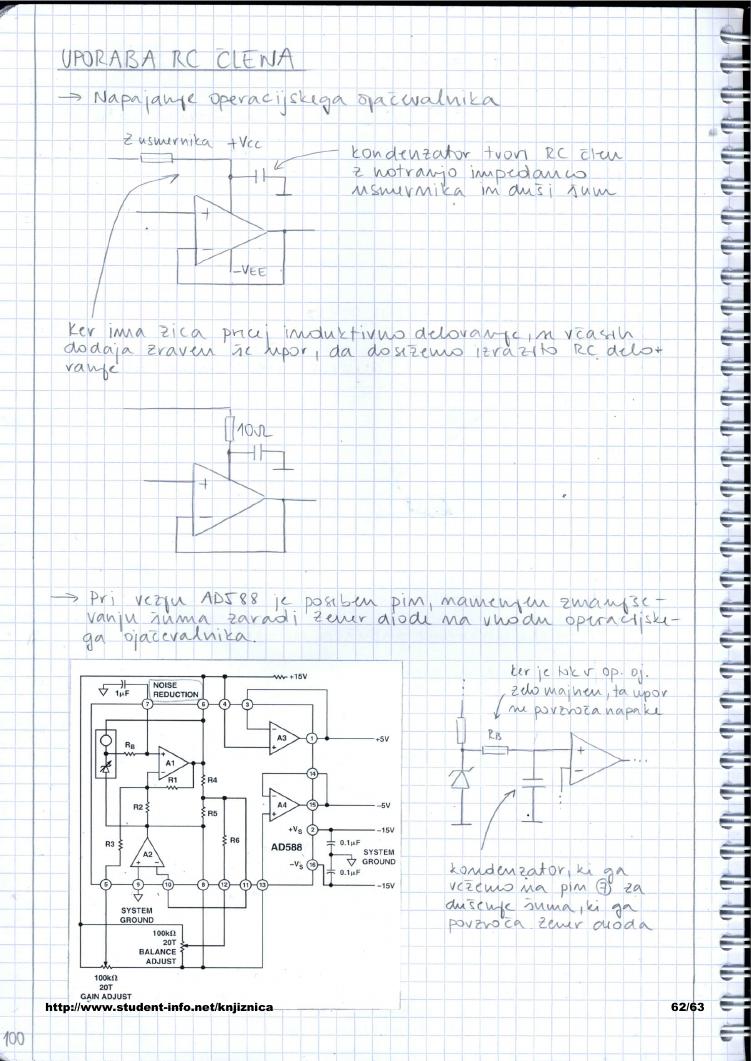 UPORABA RC ČLENA
→ Napajanje operacijskega ojačevalnika
z usmernika +Vcc
kondenzator tvori RC člen
z notranjo impedanco
usmernika in duši šum
+
−
-VEE
Ker ima žica precej induktivno delovanje, se včasih
dodaja zraven še upor, da dosežemo izrazito RC delo-
vanje
10Ω
+
−
→ Pri vezju AD588 je poseben pin, namenjen zmanjše-
vanju šuma zaradi zener diode na vhodu operacijske-
ga ojačevalnika.
NOISE
REDUCTION
1µF
+15V
7 6 4 3
RB
A1
R1
R4
A3
1
+5V
14
R2
R5
A4
15
-5V
+VS 2
-15V
R3
R6
A2
AD588
0.1µF
SYSTEM
GROUND
-VS 16
0.1µF
-15V
5 9 10 8 12 11 13
SYSTEM
GROUND
100kΩ
20T
BALANCE
ADJUST
100kΩ
20T
GAIN ADJUST
ker je tok v op. oj.
zelo majhen, ta upor
ne povzroča napake
RB
+
−
kondenzator, ki ga
vežemo na pin 7 za
dušenje šuma, ki ga
povzroča zener dioda
http://www.student-info.net/knjiznica
62/63
100